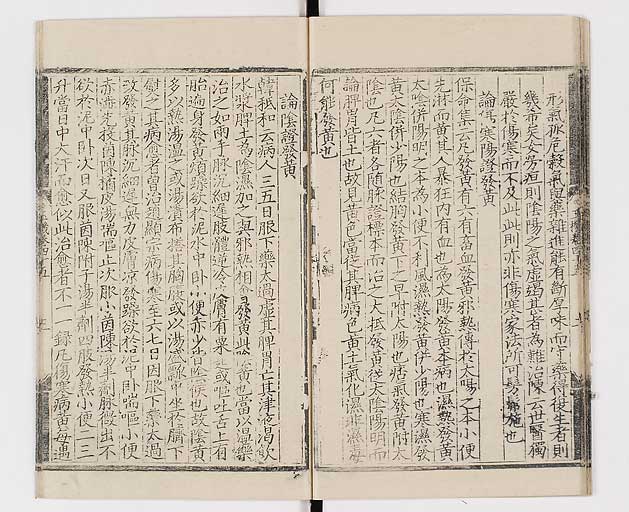 形氣脉危穀氣與藥難進能有斷厚味而守藥得復生者則
幾希矣女勞疸則陰陽之氣虛竭甚者為難治陳
嚴於傷寒而不及此此則亦非傷寒家法所可
論傷寒陽證發黃
保命集云凡發黃有六有畜血發黃邪熱傳於太陽之本小便
先淋而黃其人暴狂內有血也為太陽發黃本病也濕熱發黃
太陰併陽明之本為小便不利風濕發黃併少陽也寒濕發
黃太陰併少陽也結胸發黃下之早附太陽也痞氣發黃附太
陰也凡六者各隨脉證標本而治之大抵發黃從太陰陽明而
論脾胃皆土也故其黃色當從其脾病色黃土氣化濕非濕
何能發黃也
論陰證發黃
韓祗和云病人三五日服下藥太過虛其脾胃亡其津液渴飲
水漿脾土為陰濕加之與邪熱相會發黃此陰黃也當以溫藥
治之如兩手脉沉細遲肢體逆冷皮膚有粟起或嘔吐舌上有
胎遍身發黃煩躁欲於泥水中卧小便亦少皆陰候也故陰黃
多以熱湯溫之或湯漬布搭其胸腹或以湯盛瓢中坐於臍下
熨之其病愈者曾治趙顯宗病傷寒至六七日因服下藥太過
故發黃其脉沉細遲無力皮膚凉發躁欲於泥中卧喘嘔小便
赤澁先投茵陳橘皮湯喘嘔止次服小茵陳湯半劑脉微出不
欲於泥中卧次日又服茵陳附子湯半劑四肢發熱小便二三
升當日中大汗而愈似此治愈者不一一錄凡傷寒病黃每遇